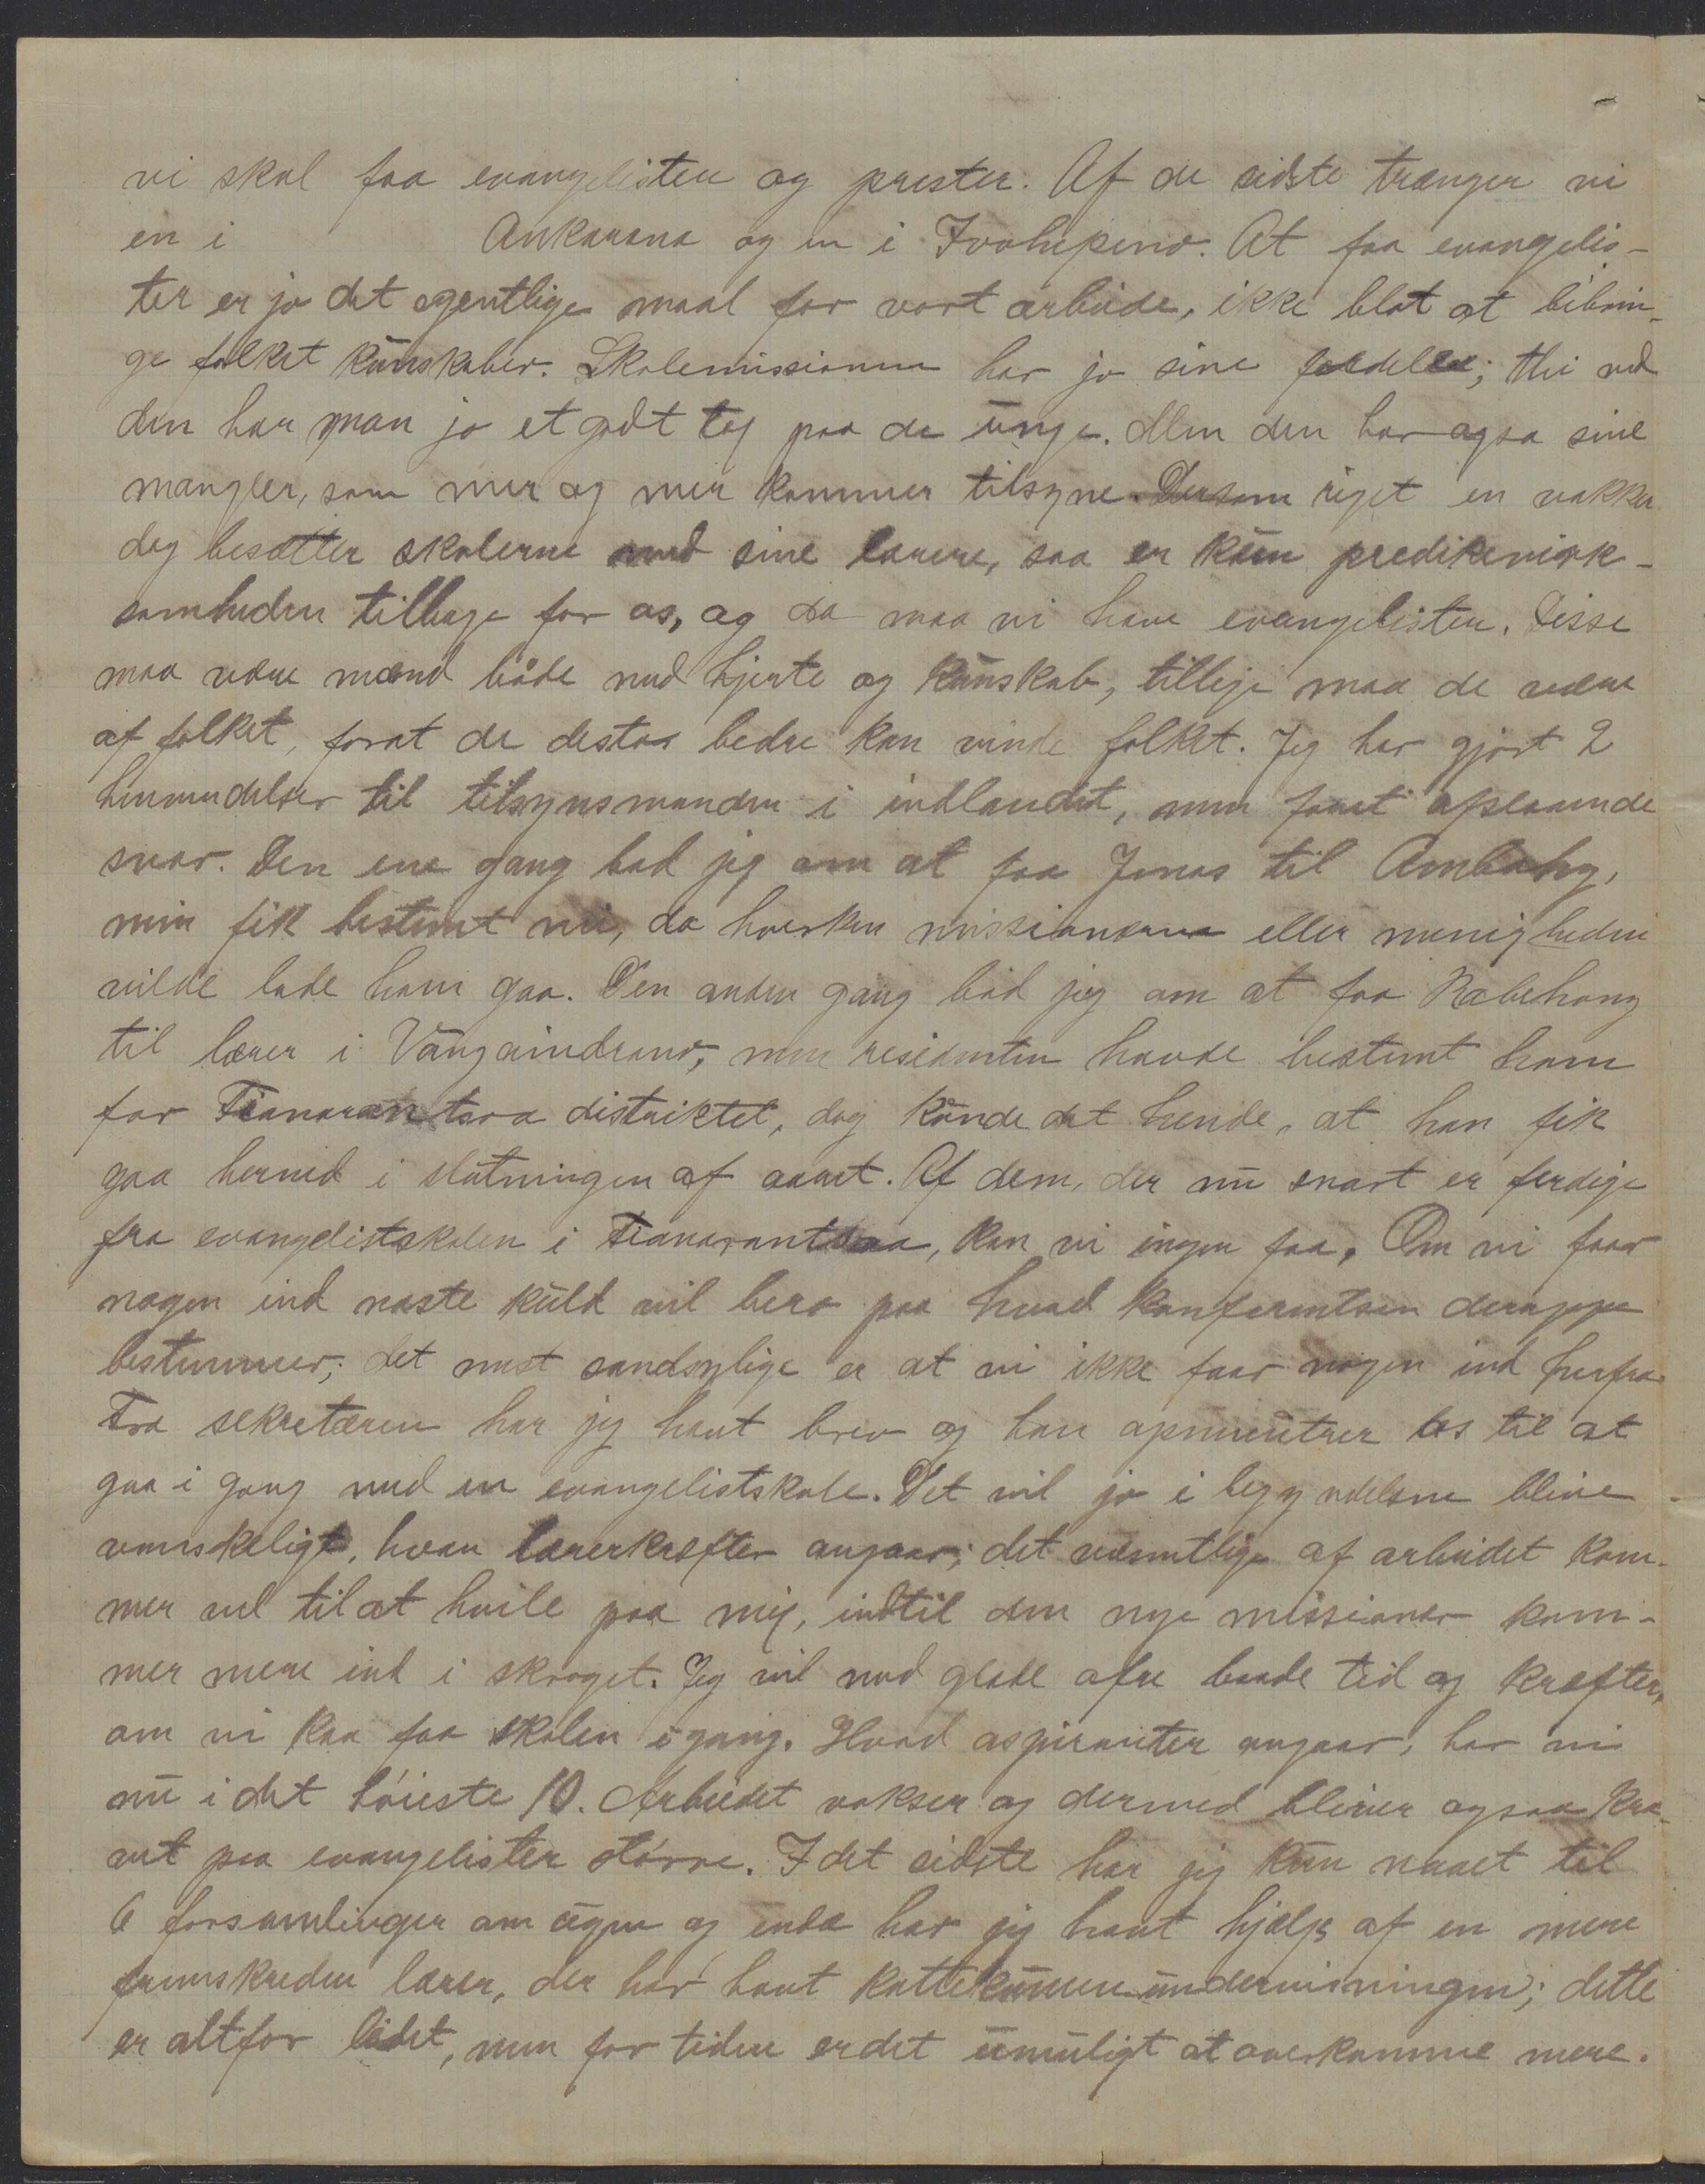 vi skal faa evangelister og prester. Af de sidste trænger vi
en i Ankarana og en i Ivohipeno. At faa evangelis-
ter er jo det egentlige maal for vort arbeide, ikke blot at bibrin-
ge folket kŭnskaber. Skolemissionen har jo sine fordele; thi ved
den har man jo et godt tag paa de ŭnge. Men den har ogsa sine
mangler, som mer og mer kommer tilsyne. Dersom riget en vakker
dag besætter skolerne med sine lærere, saa er kŭn predikenvirk-
somheden tilbage for os, og da maa vi have evangelister. Disse
maa være mænd både med hjerte og kŭnskab, tillige maa de være
af folket, forat de destoa bedre kan vinde folket. Jeg har gjort 2
henvendelser til tilsynsmanden i indlandet, men faaet afslaaende
svar. Den ene gang bad jeg om at faa Jonas til Ambahy,
men fik bestemt nei, da hverken missionærerne eller menigheden
vilde lade ham gaa. Den anden gang bad jeg om at faa Rabehany
til lærer i Vangaindrano, men residenten havde bestemt ham
for Fianarantsoa distriktet, dog kŭnde det hende, at han fik
gaa herned i slŭtningen af aaret. Af dem, der nŭ snart er ferdige
fra evangelistskolen i Fianarantsoa, kan vi ingen faa. Om vi faar
nogen ind næste kŭld vil bero paa hvad konferentsen deroppe
bestemmer; det mest sandsynlige er at vi ikke faar nogen ind herfra.
Fra sekretæren har jeg havt brev og han opmŭntrer os til at
gaa i gang med en evangelistskole. Det vil jo i begyndelsen blive
vanskeligt, hvan lærerkræfter angaar; det vesentlige af arbeidet kom-
mer vel til at hvile paa mig, indtil den nye missionær kom-
mer mere ind i sproget. Jeg vil med glæde ofre baade tid og kræfter,
om vi kan faa skolen igang. Hvad aspiranter angaar, har vi
nŭ i det høieste 10. Arbeidet vokser og dermed bliver ogsaa kra-
vet paa evangelister større. I det sidste har jeg kŭn naaet til
6 forsamlinger om ŭgen og enda har jeg havt hjælp af en mere
fremskreden lærer, der har havt kattekŭmenŭndervisningen; dette
er altfor lidet, men for tiden er det ŭmŭligt at overkomme mere.